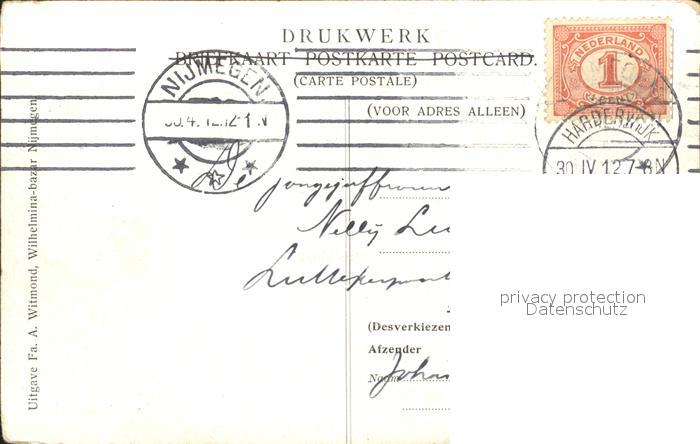 DRUKWERK
BRIEFKAART POSTKARTE POSTCARD.
(CARTE POSTALE)
(VOOR ADRES ALLEEN)
NEDERLAND
1
CENT
NIJMEGEN
30.4.12.12-1 N
HARDERWIJK
30 IV 12 7-8N
De jongejuffrouw
Nelly Lu
privacy protection
Datenschutz
(Desverkiezen
Afzender
Naam Johan
Uitgave Fa. A. Witmond, Wilhelmina-bazar Nijmegen